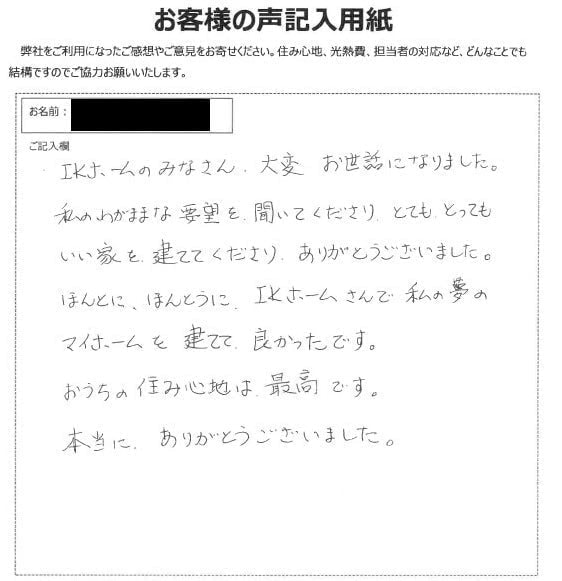 お客様の声記入用紙
弊社をご利用になったご感想やご意見をお寄せください。住み心地、光熱費、担当者の対応など、どんなことでも
結構ですのでご協力お願いいたします。
お名前：
ご記入欄
IKホームのみなさん、大変 お世話になりました。
私のわがままな要望を、聞いてくださり、とても、とっても
いい家を、建ててくださり、ありがとうございました。
ほんとに、ほんとうに、IKホームさんで 私の夢の
マイホームを 建てて、良かったです。
おうちの住み心地は、最高です。
本当に、ありがとうございました。